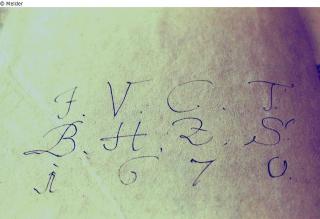 © Melder
F. V. C. T.
B. H. Z. S.
1 6 7 0.